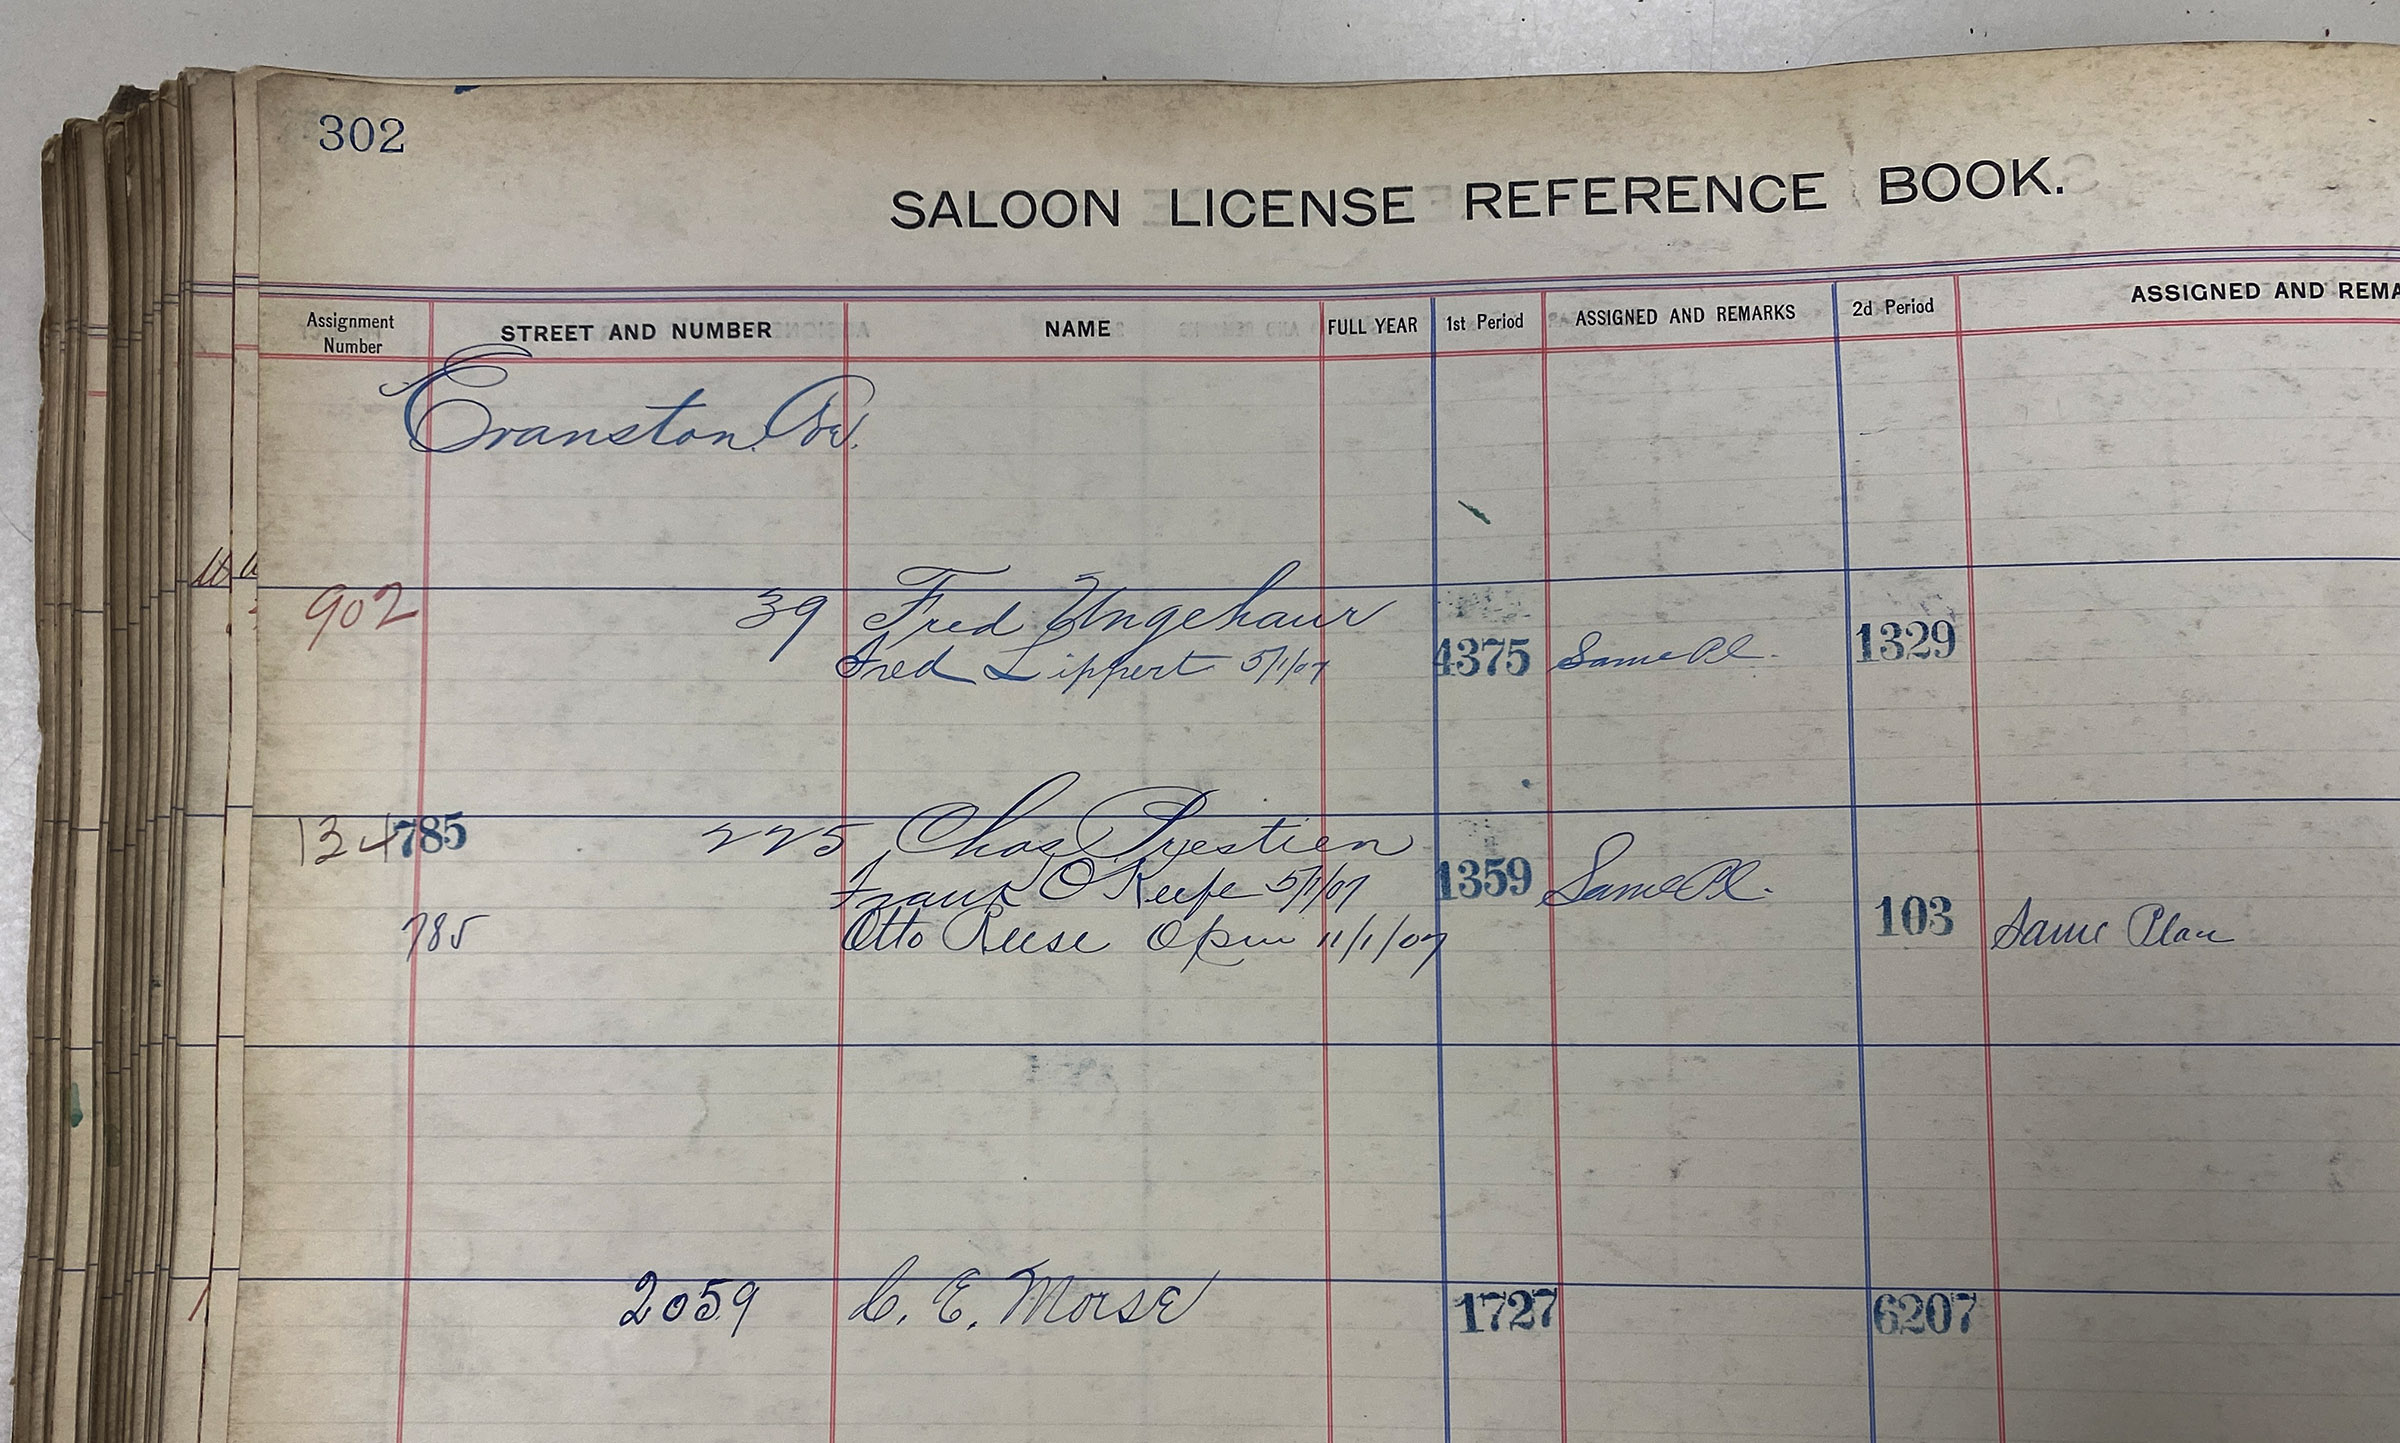 302
SALOON LICENSE REFERENCE BOOK.
Assignment Number STREET AND NUMBER NAME FULL YEAR 1st Period ASSIGNED AND REMARKS 2d Period ASSIGNED AND REMA
Evanston Av.
902 39 Fred Ungehaur
Fred Lippert 5/1/07 4375 Same Pl. 1329
134 785 225 Chas Prestien
Frank O'Keefe 5/1/07 1359 Same Pl.
785 Otto Reese Open 11/1/07 103 Same Plan
2059 C. E. Morse 1727 6207